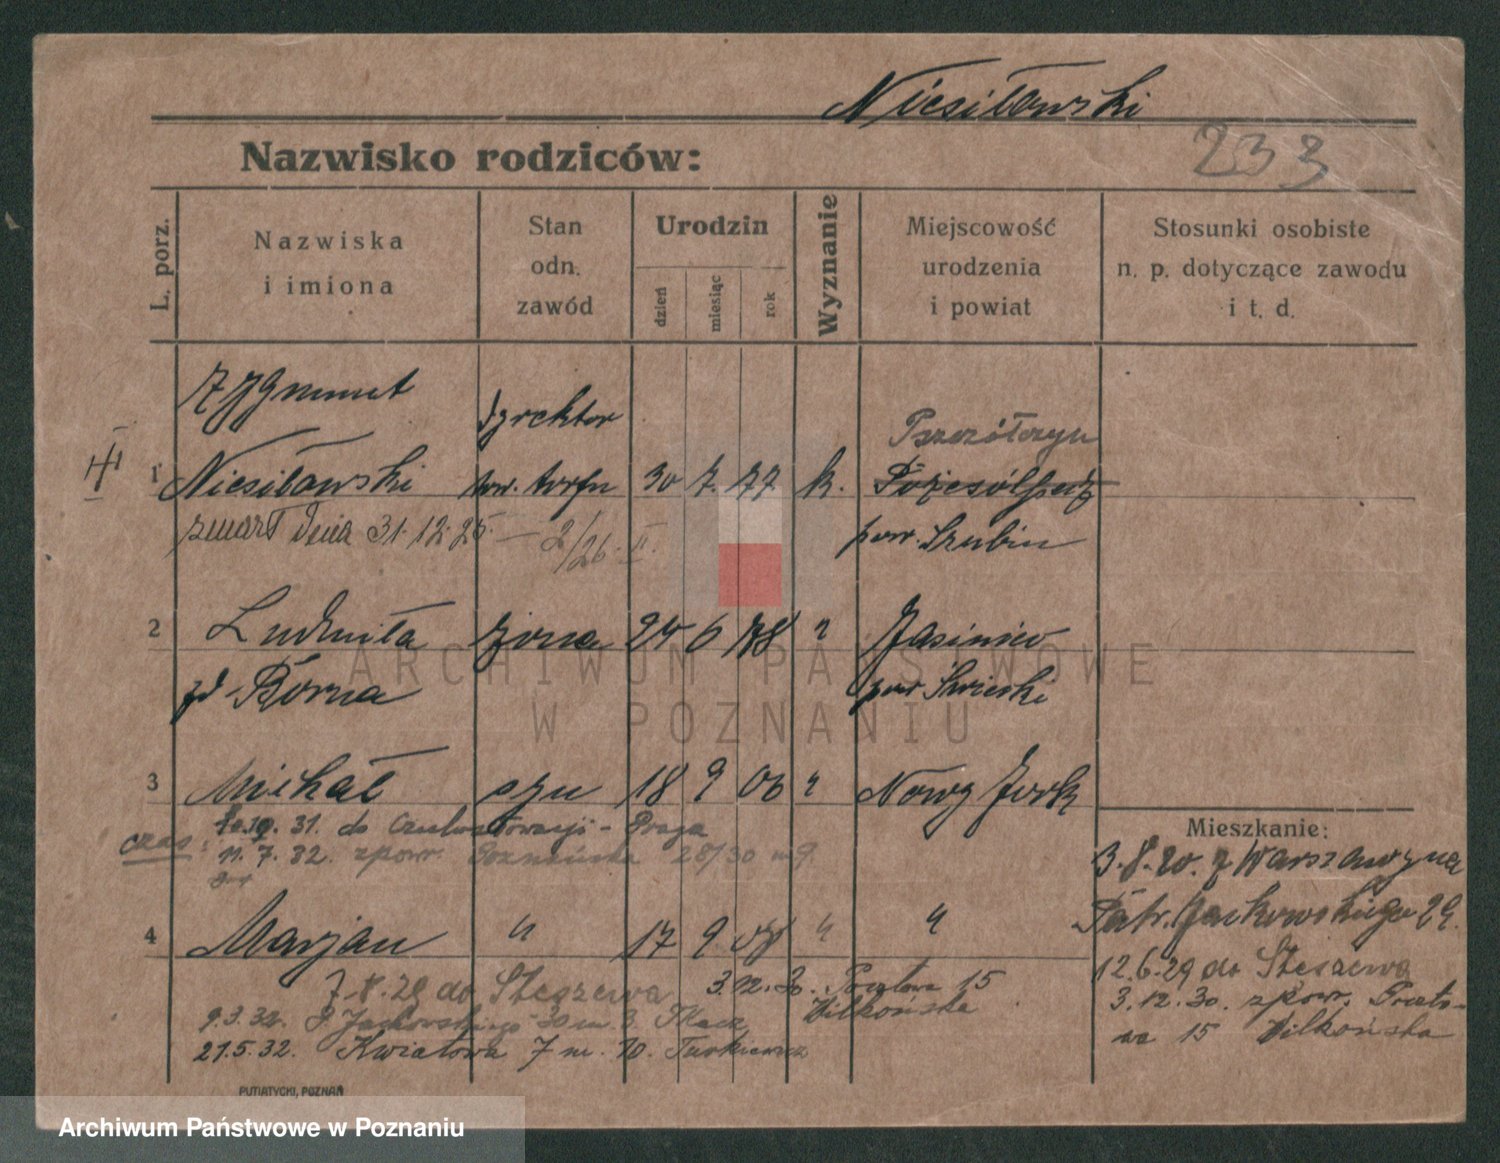 Niesiławski
233
Nazwisko rodziców:
L. porz.
Nazwiska
i imiona
Stan
odn.
zawód
Urodzin
dzień
miesiąc
rok
Wyznanie
Miejscowość
urodzenia
i powiat
Stosunki osobiste
n. p. dotyczące zawodu
i t. d.
Zygmunt
dyrektor
1 Niesiławski tow. torfu 30 7. 77 k.
zmarł dnia 31.12.25 — 2/26 II.
pow. Szubin
2 Ludmiła żona 24 6 78 " Jasiniec
zd Borna
pow. Świecki
3 Michał syn 18 9 06 " Nowy Jork
31. do Czechosłowacji - Praga
czas:
11. 7. 32. zpowr. Poznańska 28/30 m 9.
4 Marjan " 17 9 "  "
7.8.29 do Stęszewa 3.12.30. Pocztowa 15
Wilkońska
9.3.32. P. Jackowskiego 30 m 3. Tkacz
21.5.32. Kwiatowa 7 m. 10. Turkiewicz
Mieszkanie:
3.8.20. z Warszawy na
Patr. Jackowskiego 29.
12.6.29 do Stęszewa
3.12.30. zpowr. Poczto-
wa 15 Wilkońska
PUTIATYCKI, POZNAŃ
ARCHIWUM PAŃSTWOWE
W POZNANIU
Archiwum Państwowe w Poznaniu